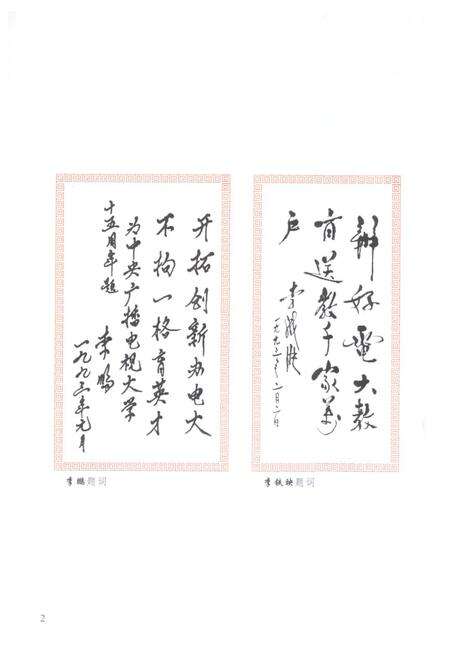 开拓创新办电大
不拘一格育英才
为中央广播电视大学
十五周年题
李鹏
一九九三年元月
李鹏题词
办好电大教
育送教千家万
户
李铁映
一九九三年二月二日
李铁映题词
2